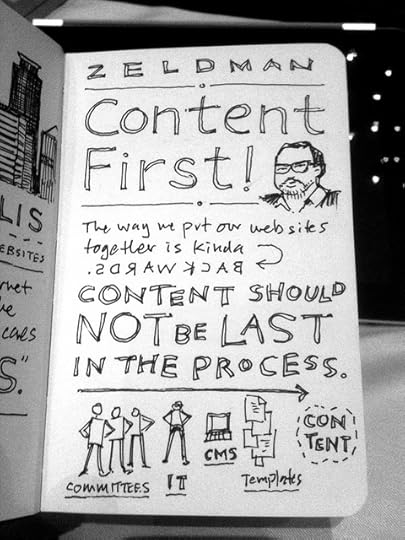 LIS
EBSITES
rnet
he
cares
S."
ZELDMAN
Content
First!
The way we put our web sites
together is kinda
BACKWARDS.
CONTENT SHOULD
NOT BE LAST
IN THE PROCESS.
COMMITTEES
IT
CMS
Templates
CON
TENT